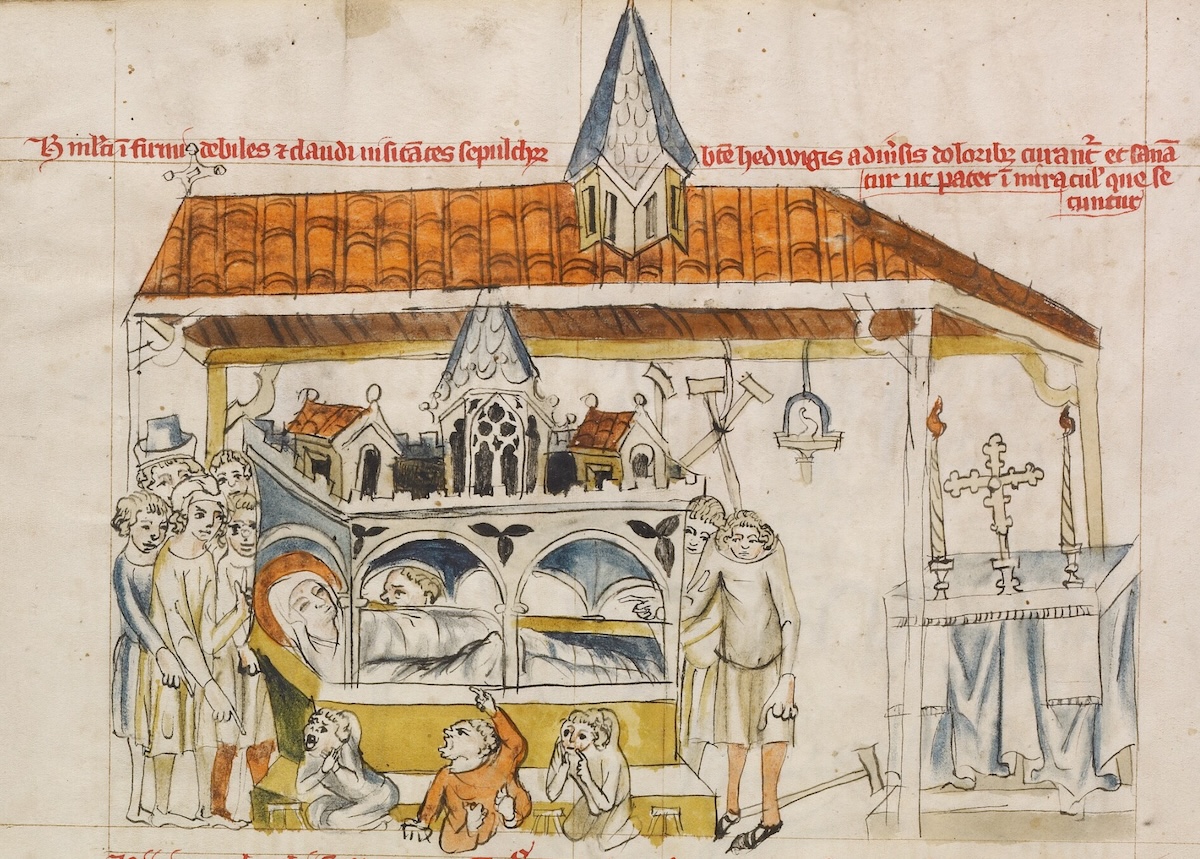 H̄ mlti ī firmi debiles ⁊ claudi visitātes sepulchꝝ bte hedwigis a diu'sis doloribꝫ curant᷑ et sana
tur ut patet ī miracul' que se
cuntur